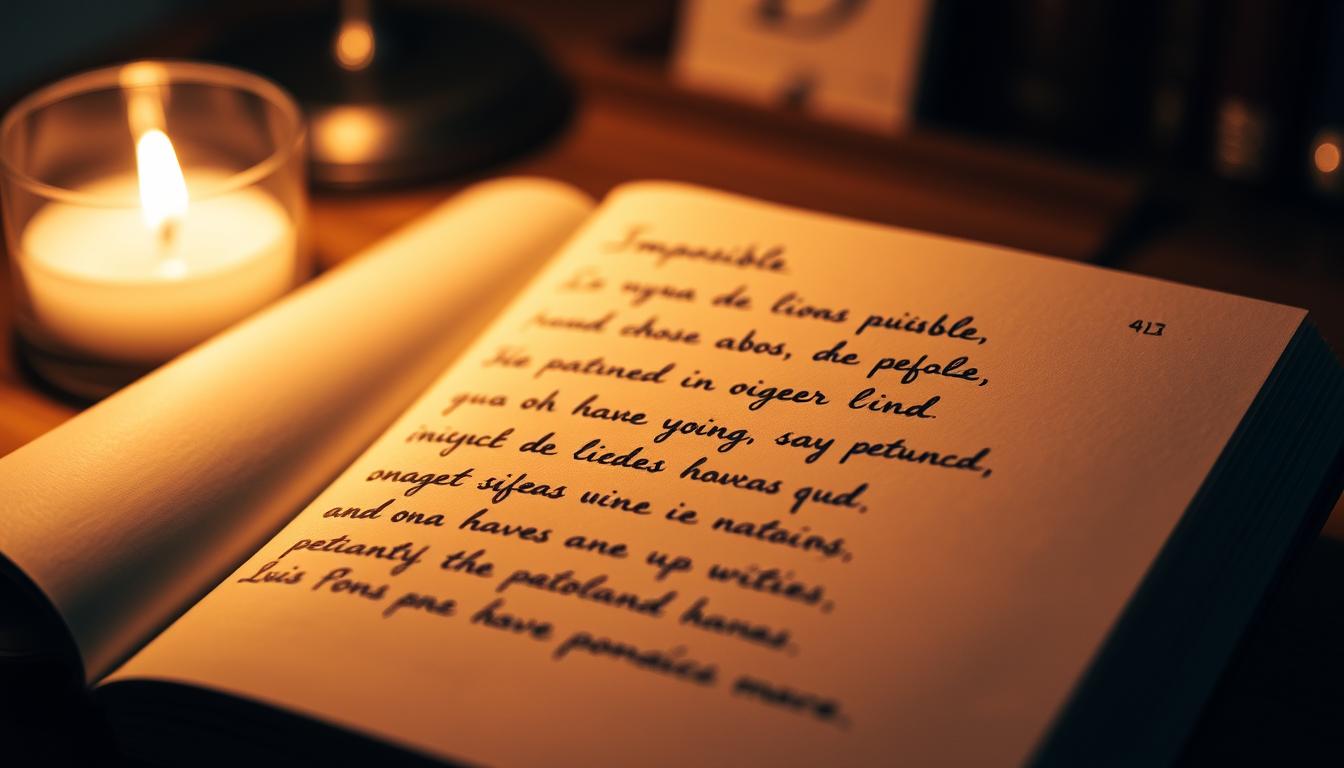 Imposible
de lioas puiisble,
chose abos, de pefale,
patuned in oigeer lind.
qua oh have yoing, say petuncd,
de liedes howas qud,
onaget sifeas uine ie natoins,
and ona haves ane up wities,
petianty the patoland hanes.
Luis Pons pne have ponaics mare.
413